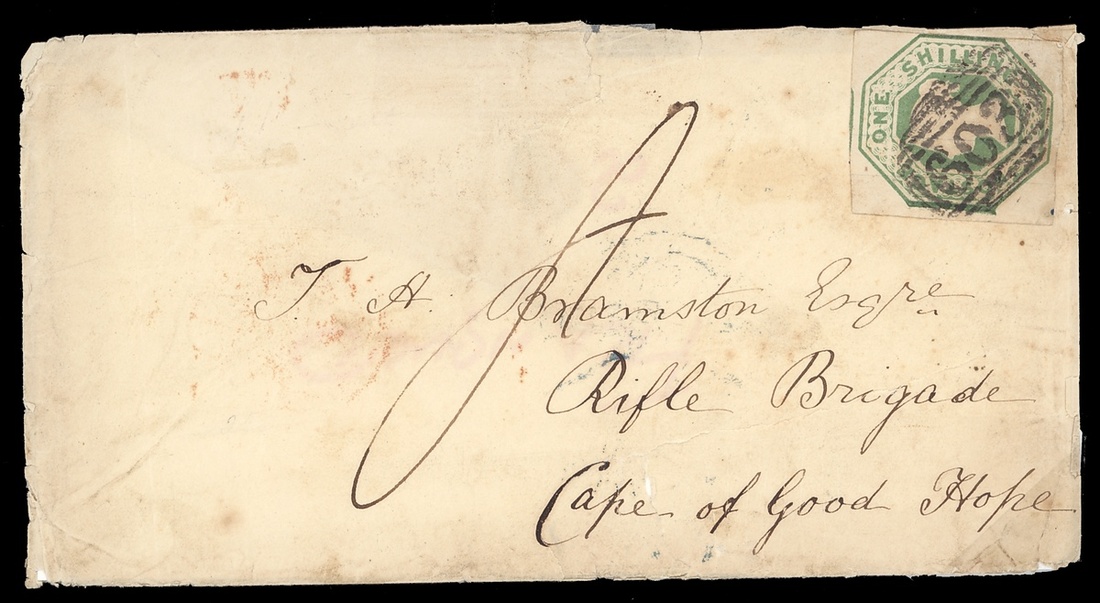 ONE SHILLING
603
T. H. Bramston Esqre
Rifle Brigade
Cape of Good Hope